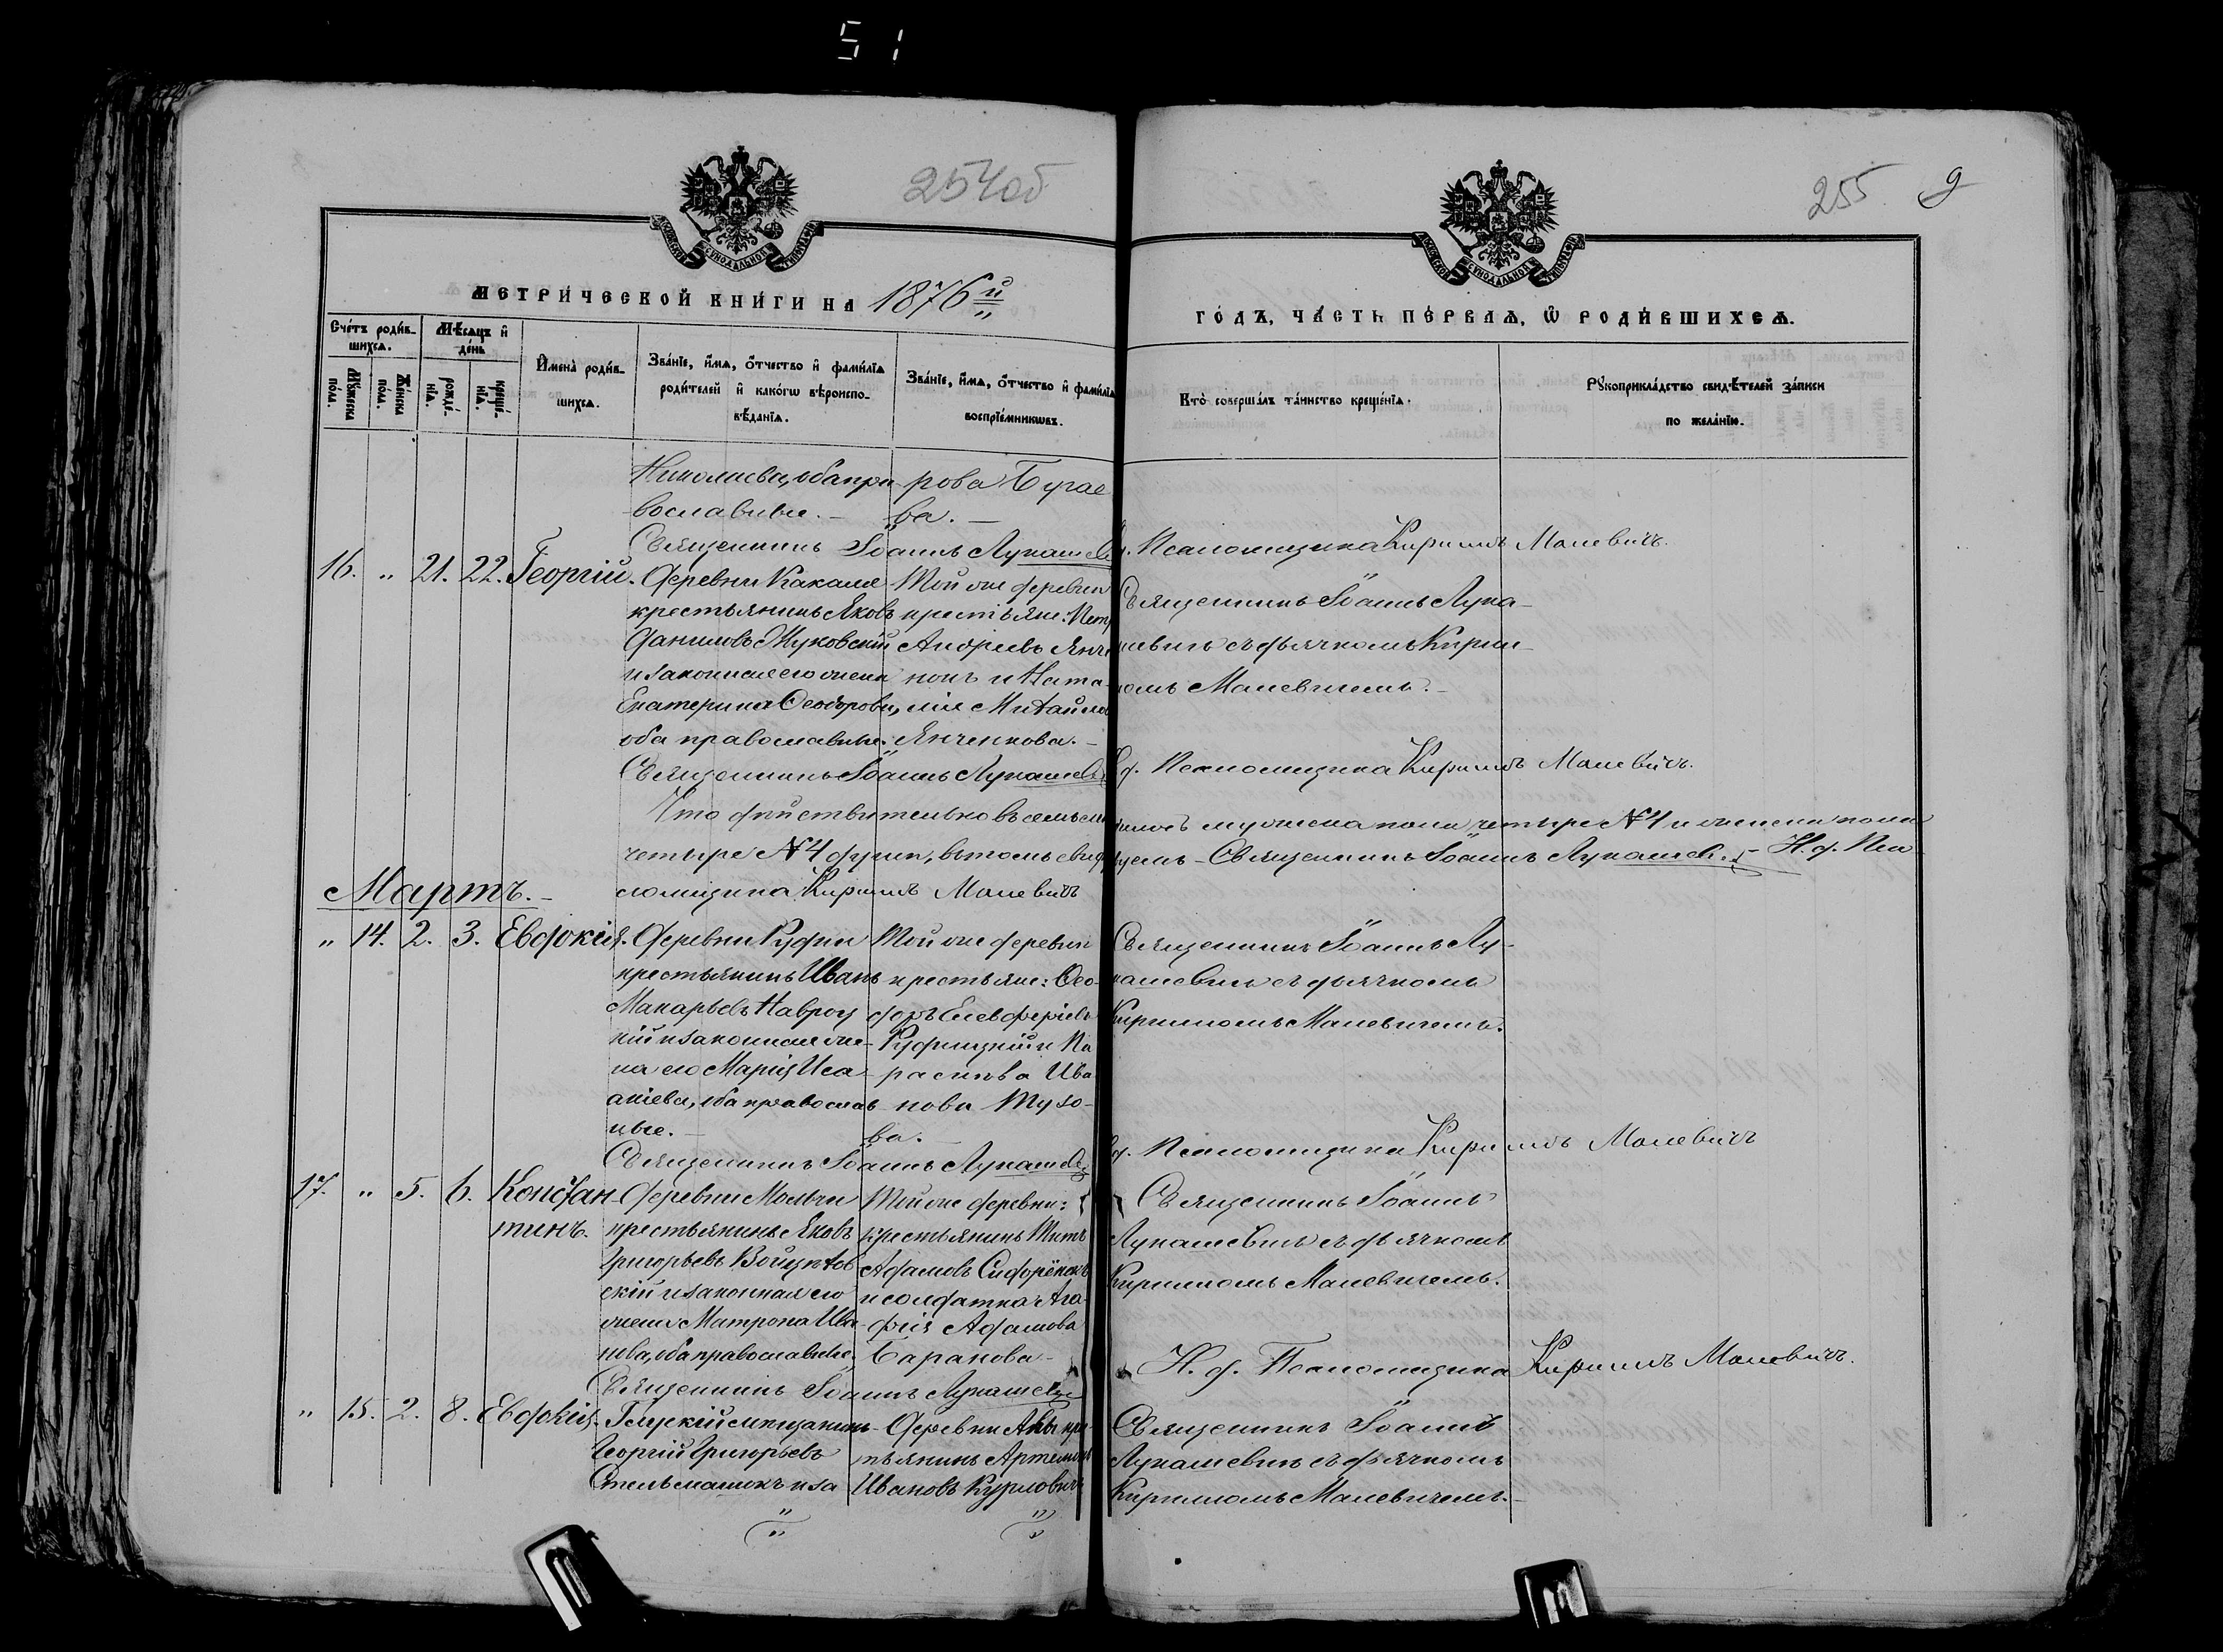 51
254об
255
9
МЕТРИЧЕСКОЙ КНИГИ НА 1876й
ГОДЪ, ЧАСТЬ ПЕРВАѦ, Ѡ РОДИВШИХСѦ.
Счетъ родив-
шихсѧ.
Мꙋжеска пола.
Женска пола.
Мѣсѧцъ и
день
рожде-
нїѧ.
креще-
нїѧ.
Имена родив-
шихсѧ.
Званїе, имѧ, отчество и фамилїѧ
родителей и какогѡ вѣроиспо-
вѣданїѧ.
Званїе, имѧ, отчество и фамилїѧ
воспрїемникѡвъ.
Кто совершалъ таинство крещенїѧ.
Рꙋкоприкладство свидѣтелей записи
по желанїю.
Николаева, оба пра-
вославные. –
рова Бугае
ва. –
Священникъ Іоаннъ Лукашев
д. Псаломщика Кириллъ Малевичъ.
16. „ 21. 22. Георгій.
Деревни Какале
крестьянинъ Яковъ
Даниловъ Жуковскій
и законная его жена
Екатерина Ѳеодорова,
оба православные.
Той же деревни
крестьяне: Петр
Андреевъ Янче
нокъ и Ната-
лія Михайлов
Янченкова. –
Священникъ Іоаннъ Лука-
шевичъ съ дьячкомъ Кирил-
ломъ Малевичемъ. –
Священникъ Іоаннъ Лукашев
д. Псаломщика Кириллъ Малевичъ.
Что действительно въ семъ
мужеска пола четыре №4 и женска пола
четыре №4 души, въ томъ свид
уемъ – Священникъ Іоаннъ Лукашев. – И. д. Пса-
ломщика Кириллъ Малевичъ
Мартъ. –
„ 14. 2. 3. Евдокія.
Деревни Рудни
крестьянинъ Иванъ
Макарьевъ Навроц
кій и законная же-
на его Марія Иса
акіева, оба православ
ные. –
Той же деревни
крестьяне: Ѳео-
доръ Елевферіевъ
Рудницкій и Па
раскева Ива
нова Тузо-
ва. –
Священникъ Іоаннъ Лу-
кашевичъ съ дьячкомъ
Кирилломъ Малевичемъ.
Священникъ Іоаннъ Лукашев
д. Псаломщика Кириллъ Малевичъ
17. „ 5. 6. Констан
тинъ.
Деревни Мольчи
крестьянинъ Яковъ
Григорьевъ Войцехов
скій и законная его
жена Матрона Ива
нова, оба православные.
Той же деревни:
крестьянинъ Титъ
Адамовъ Сидорёнокъ
и солдатка Ага-
фія Адамова
Баранова –
Священникъ Іоаннъ
Лукашевичъ съ дьячкомъ
Кирилломъ Малевичемъ.
Священникъ Іоаннъ Лукашев
И. д. Псаломщика Кириллъ Малевичъ.
„ 15. 2. 8. Евдокія.
Глускій мещанинъ
Георгій Григорьевъ
Стельмашокъ и за
Деревни кре
тьянинъ Артемонъ
Ивановъ Курловичъ
Священникъ Іоаннъ
Лукашевичъ съ дьячкомъ
Кирилломъ Малевичемъ. –